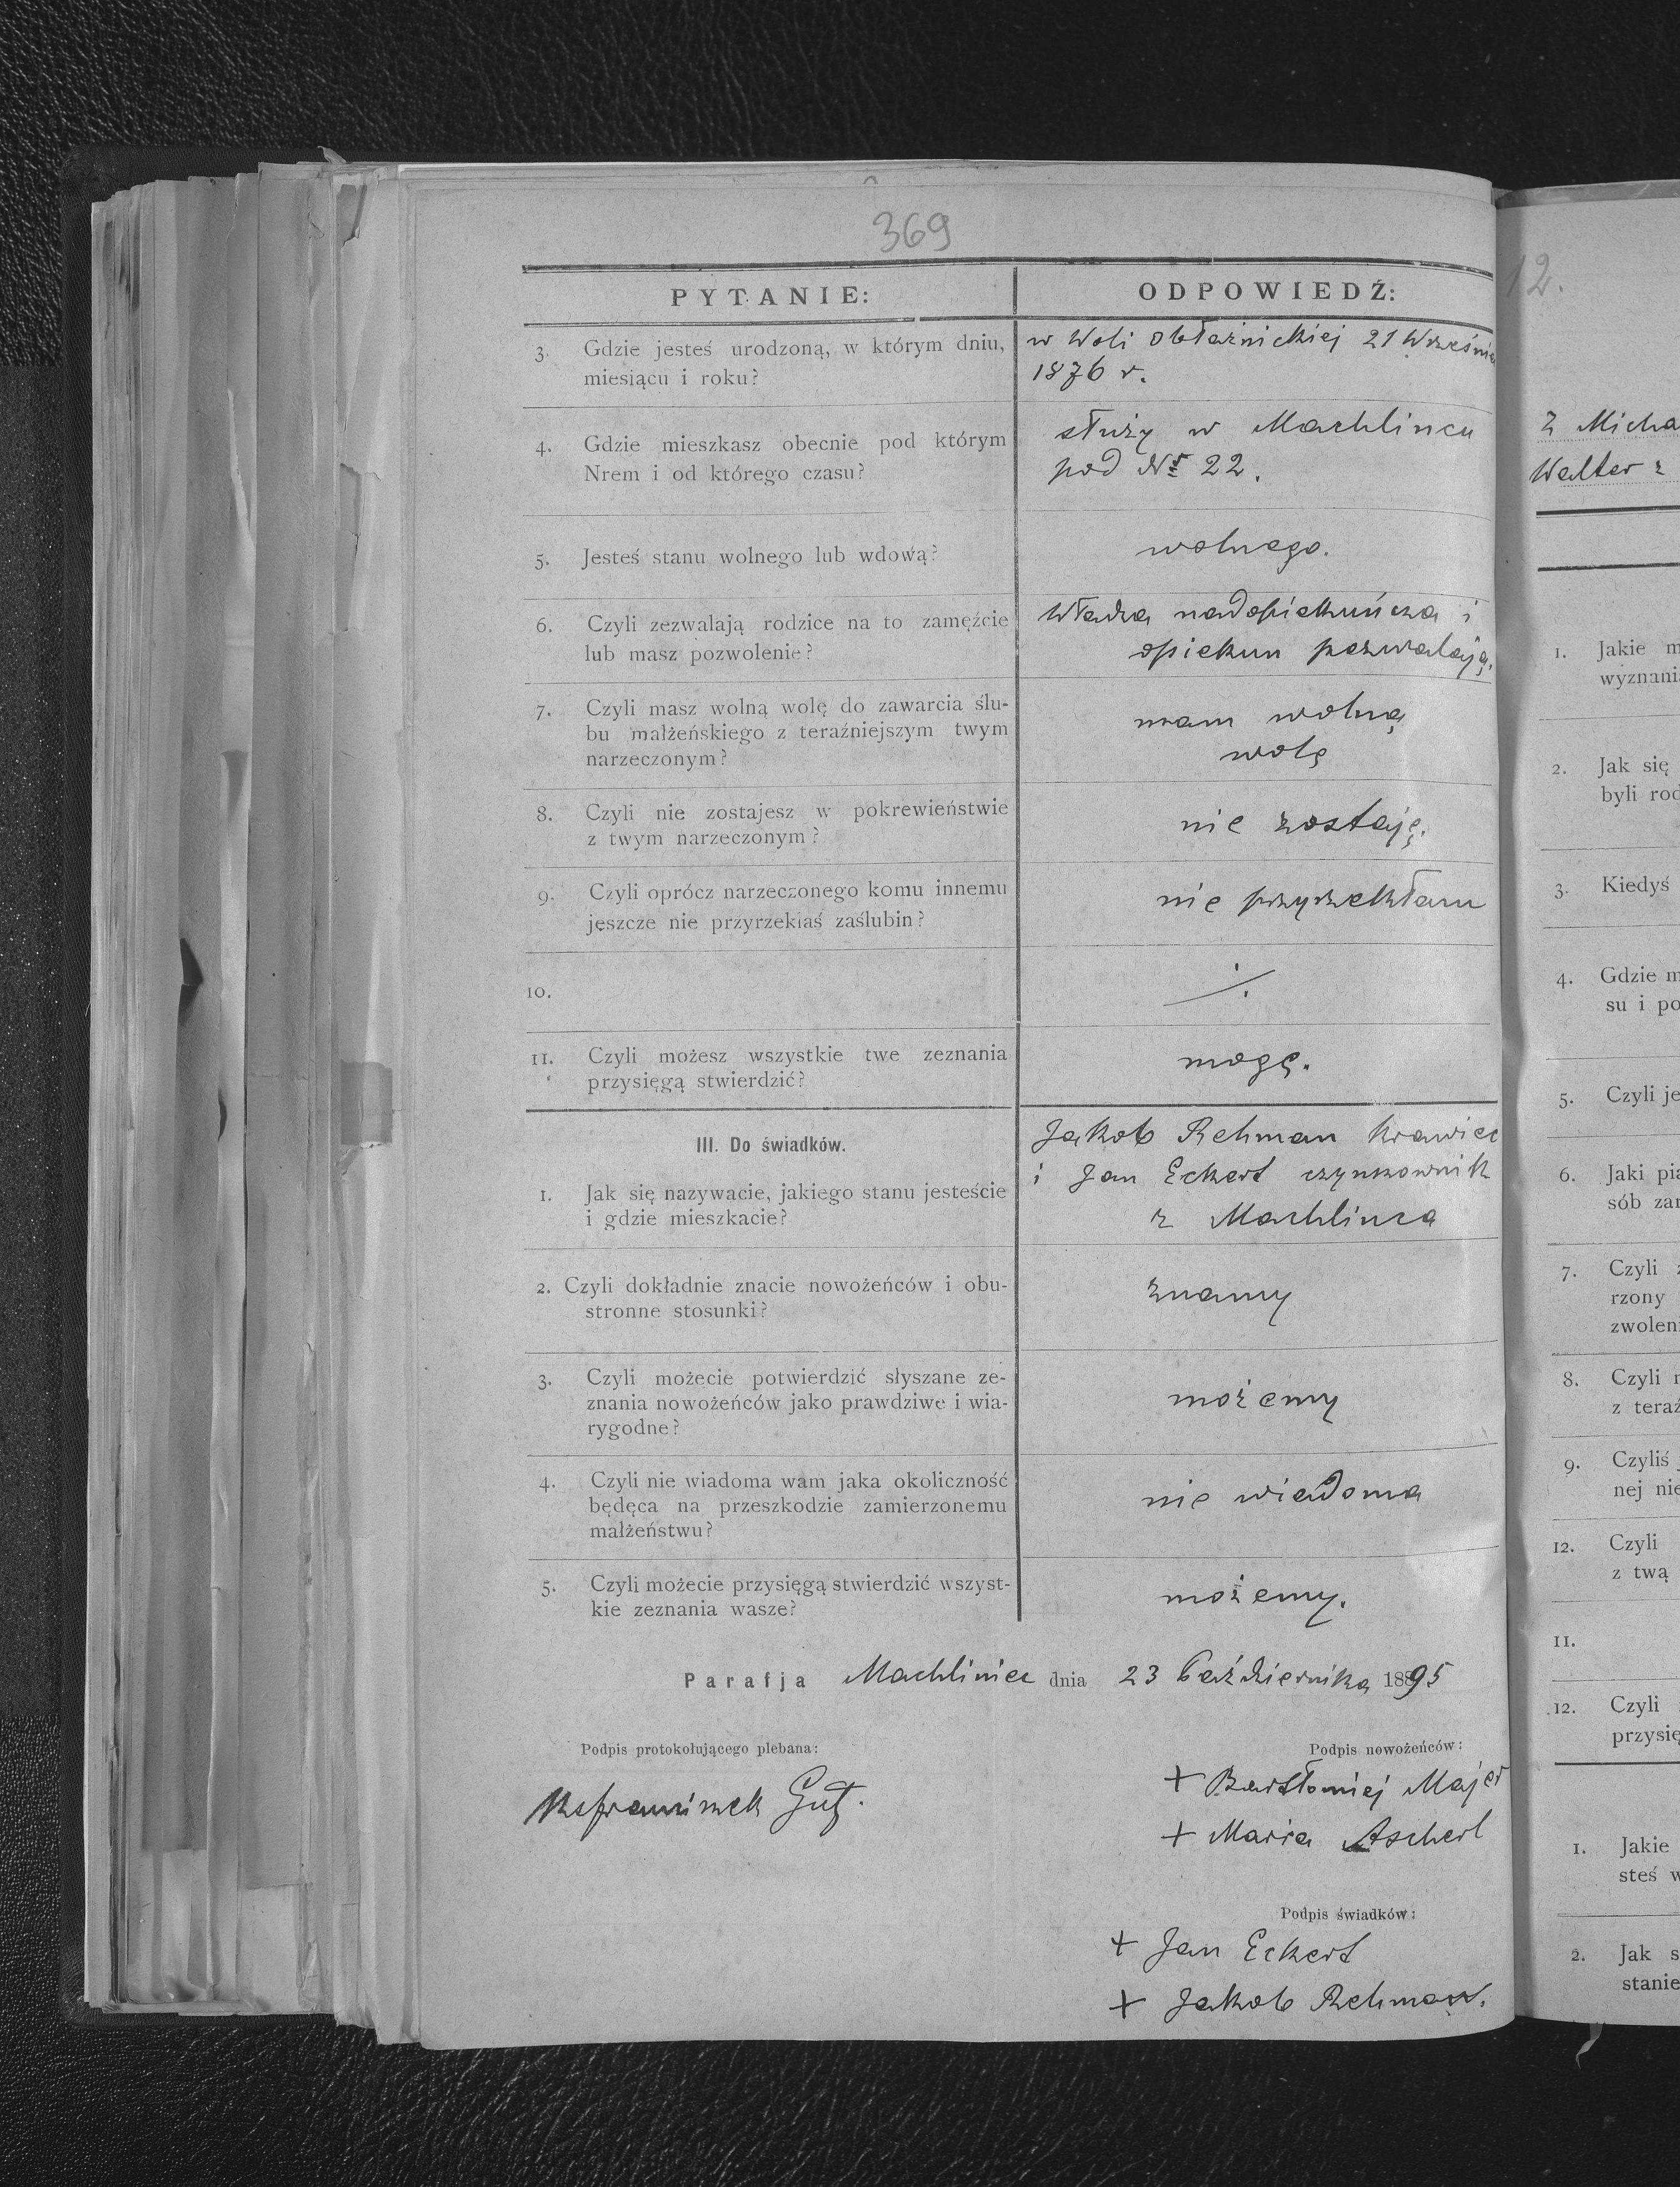 369
PYTANIE:
ODPOWIEDŹ:
3. Gdzie jesteś urodzoną, w którym dniu,
miesiącu i roku?
w Woli Obłaźnickiej 21 Wrześnie
1876 r.
4. Gdzie mieszkasz obecnie pod którym
Nrem i od którego czasu?
służy w Machlincu
pod Nr 22.
5. Jesteś stanu wolnego lub wdową?
wolnego.
6. Czyli zezwalają rodzice na to zamęźcie
lub masz pozwolenie?
Władza nadopiekuńcza i
opiekun pozwalają.
7. Czyli masz wolną wolę do zawarcia ślu-
bu małżeńskiego z teraźniejszym twym
narzeczonym?
mam wolną
wolę
8. Czyli nie zostajesz w pokrewieństwie
z twym narzeczonym?
nie zostaję.
9. Czyli oprócz narzeczonego komu innemu
jeszcze nie przyrzekłaś zaślubin?
nie przyrzekłam
10.
11. Czyli możesz wszystkie twe zeznania
przysięgą stwierdzić?
mogę.
III. Do świadków.
1. Jak się nazywacie, jakiego stanu jesteście
i gdzie mieszkacie?
Jakob Rehman krawiec
i Jan Eckert czynszownik
z Machlinca
2. Czyli dokładnie znacie nowożeńców i obu-
stronne stosunki?
znamy
3. Czyli możecie potwierdzić słyszane ze-
znania nowożeńców jako prawdziwe i wia-
rygodne?
możemy
4. Czyli nie wiadoma wam jaka okoliczność
będęca na przeszkodzie zamierzonemu
małżeństwu?
nie wiadoma
5. Czyli możecie przysięgą stwierdzić wszyst-
kie zeznania wasze?
możemy.
Parafja Machliniec dnia 23 Października 1895
Podpis protokołującego plebana:
Podpis nowożeńców:
+ Bartłomiej Majer
+ Maria Ascherl
Podpis świadków:
+ Jan Eckert
+ Jakob Rehman.
12.
Z Micha
Walter z
1. Jakie m
wyznani
2. Jak się
byli rod
3. Kiedyś
4. Gdzie m
su i po
5. Czyli je
6. Jaki pia
sób zar
7. Czyli z
rzony
zwolen
8. Czyli n
z teraź
9. Czyliś
nej nie
12. Czyli
z twą
11.
12. Czyli
przysię
1. Jakie
steś w
2. Jak s
stanie